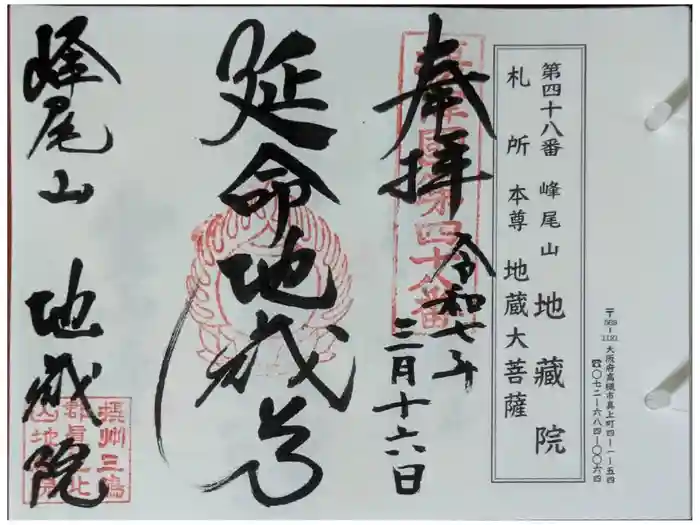 〒569-1121 大阪府高槻市真上町四-一-五四
☎〇七二-六八四-〇〇六四
第四十八番 峰尾山 地蔵院
札所本尊 地蔵大菩薩
奉拝 令和七年
三月十六日
延命地蔵尊
峰尾山 地蔵院
摂津国第四十八番